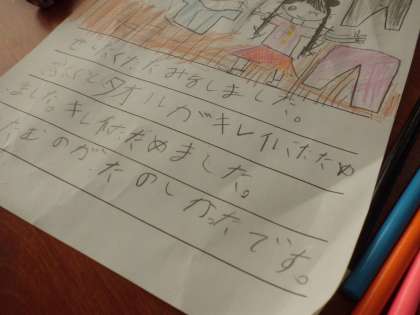 せんたくたたみをしました。
ふくとタオルがキレイにたため
ました。キレイにただめました。
たむのが、たのしかったです。